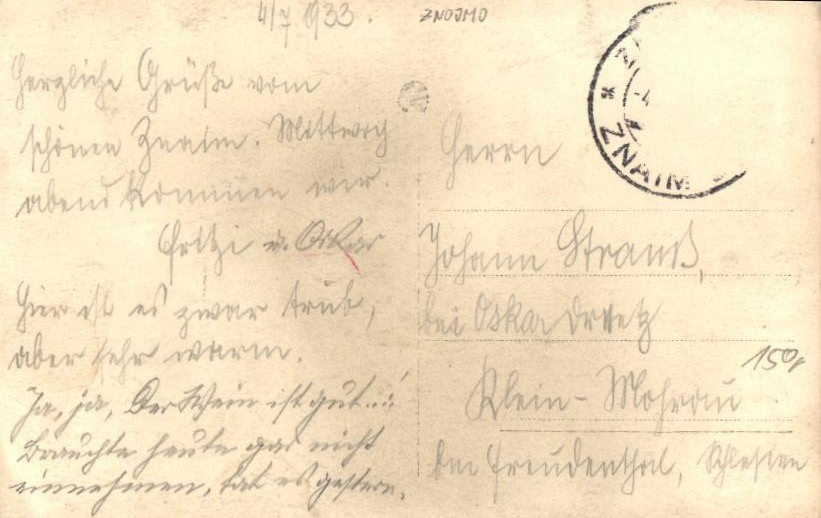 4/7 1933.
ZNOJMO
Herzliche Grüße vom
schönen Znaim. Mittwoch
abend kommen wir.
Fritzi u. Oskar
Hier ist es zwar trüb,
aber sehr warm.
Ja, ja, Der Wein ist gut...!
Brauchte heute gar nicht
einnehmen, tat es gestern.
ZNAIM
Herrn
Johann Strauß,
bei Oskar
150,
Klein-Mohrau
bei Freudenthal, Schlesien